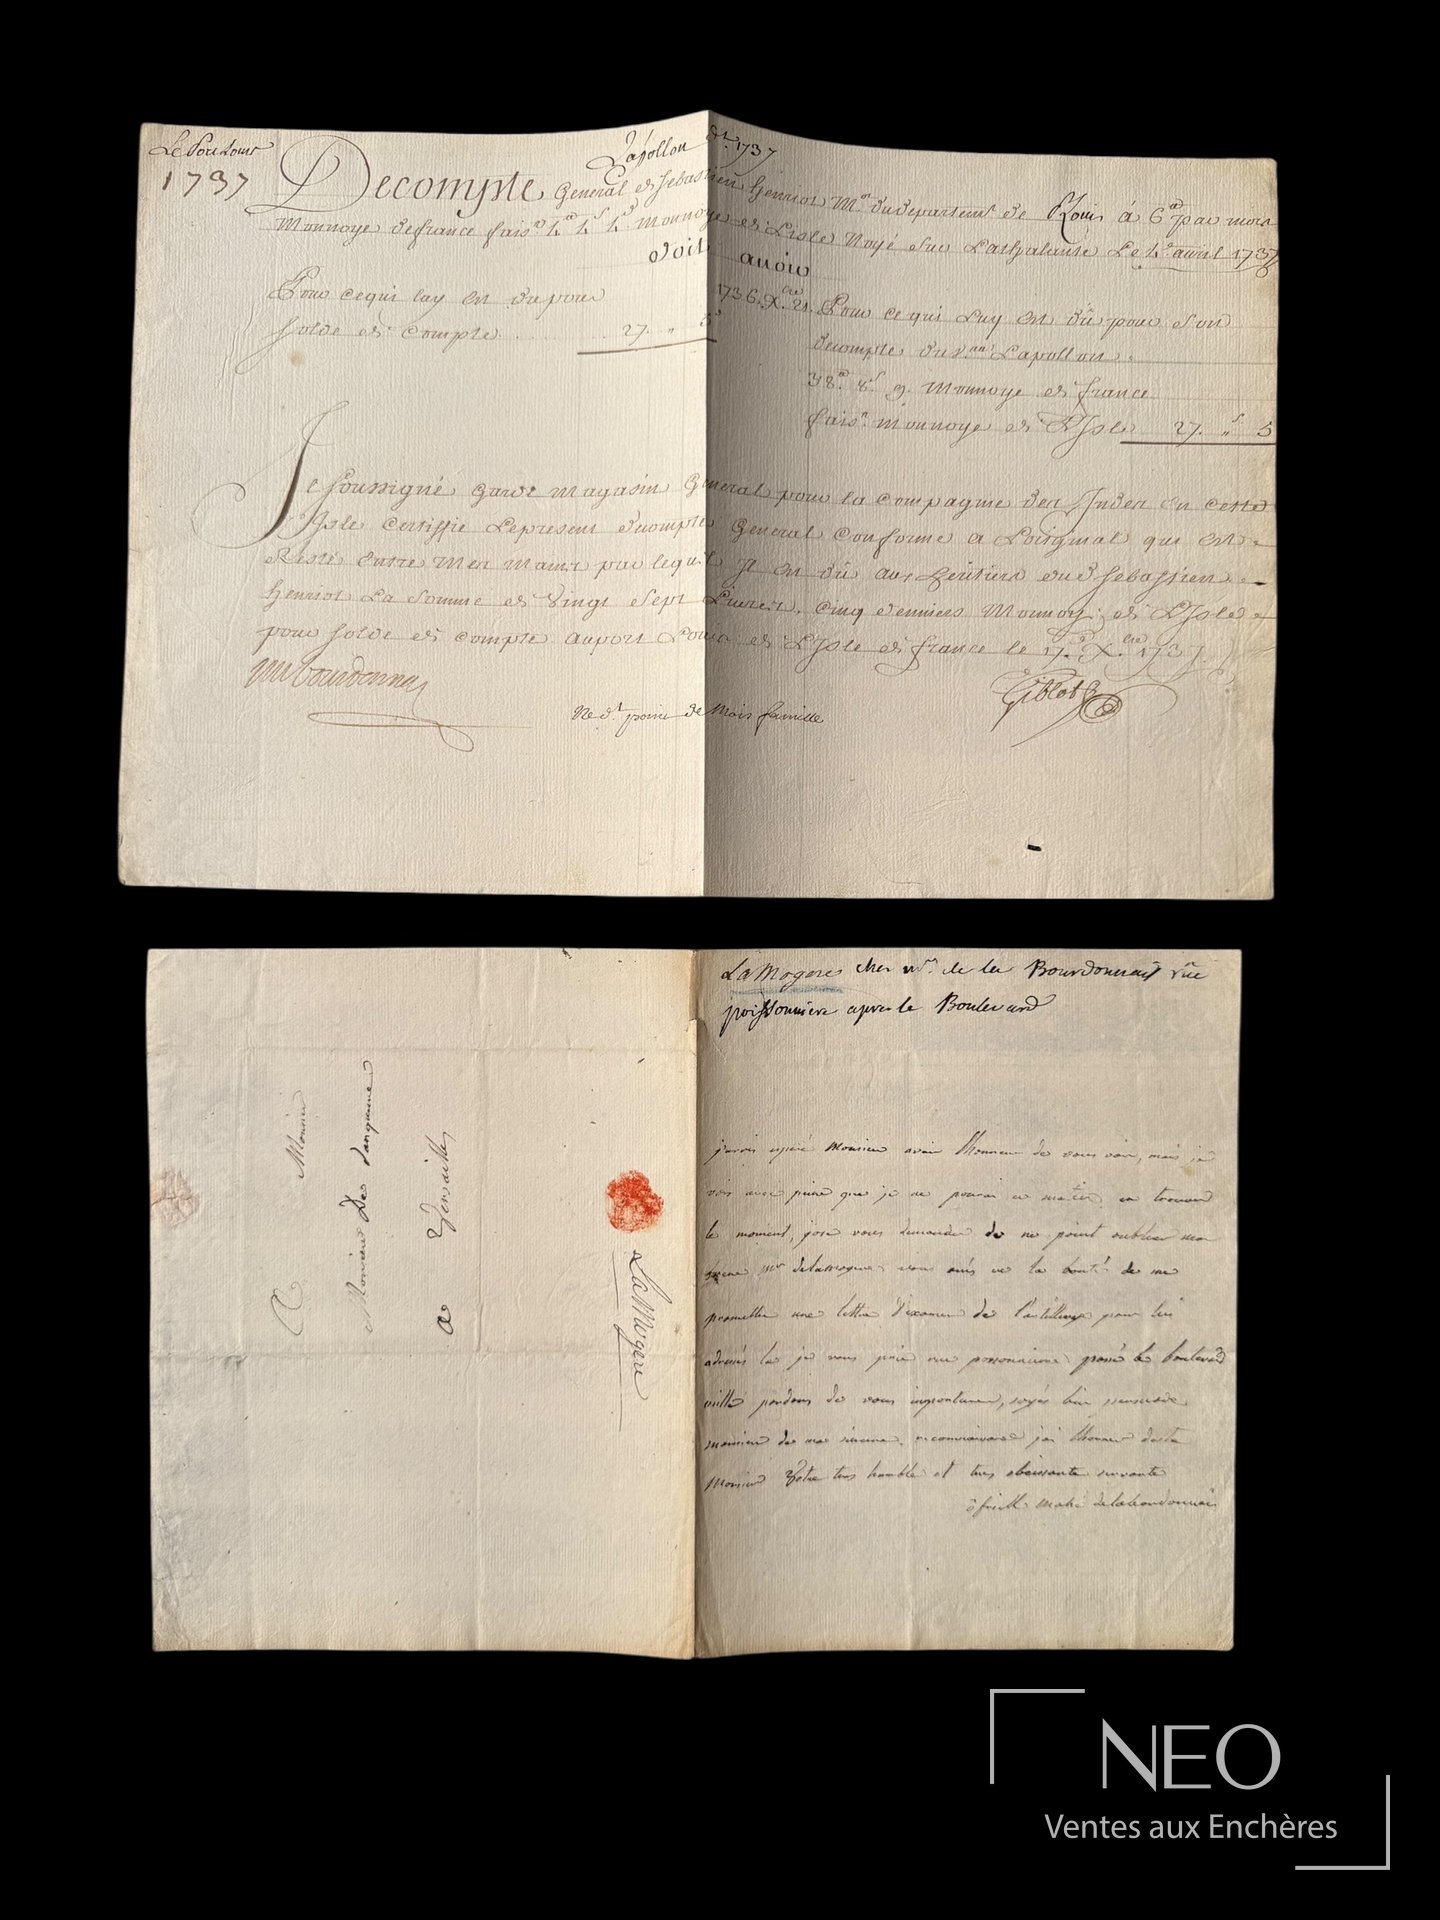 Le Port Louis
1737
Lapollon dt. 1737
Decompte General de Sebastien Henriot Mot. du departemt. de à 6tt par mois
Monnoye de france fait. Monnoye de L'isle Noyé sur Lathalante Le 4e. avril 1737
Doit avoir
Pour ce qui luy est du pour
solde de compte 27. " 5d
1736. Xbre 21. Pour ce qui luy est dû pour son
decompte du vau. Lapollon
38tt. 8s. 9. Monnoye de france
fais.t monnoye de L'Isle 27. "s 5
Je soussigné garde magasin General pour la compagnie des Indes en cette
Isle certiffie le present decompte General conforme a Loriginal qui est
Resté Entre Mes mains par lequel Il est dû aux heritiers dud Sebastien
henriot La somme de Vingt Sept Livres, Cinq deniers Monnoye de L'Isle
pour solde de compte au port Louis de L'Isle de france le 17.e Xbre 1737
Giblot
Ne dt. point de Mois famille
La Mogere chez mr. de la Bourdonnais rue
poissonniere apres le Boulevard
A
Monsieur
Monsieur De
a Versailles
La Mogere
javois esperé Monsieur avoir lhonneur de vous voir, mais je
vois avec peine que je ne pourai ce matin en trouver
le moment, jose vous demander de ne point oublier
mr delamogere vous avés eu la bonté de me
promettre une lettre dexamen de lartillerye pour lui
adressés la je vous prie rue poissonniere passé le boulevard
mille pardons de vous importuner, soyés bien persuadé
monsieur de ma sincere reconnoissance jai lhonneur detre
Monsieur Votre tres humble et tres obeissante servante
mahé delabourdonnais
NEO
Ventes aux Enchères